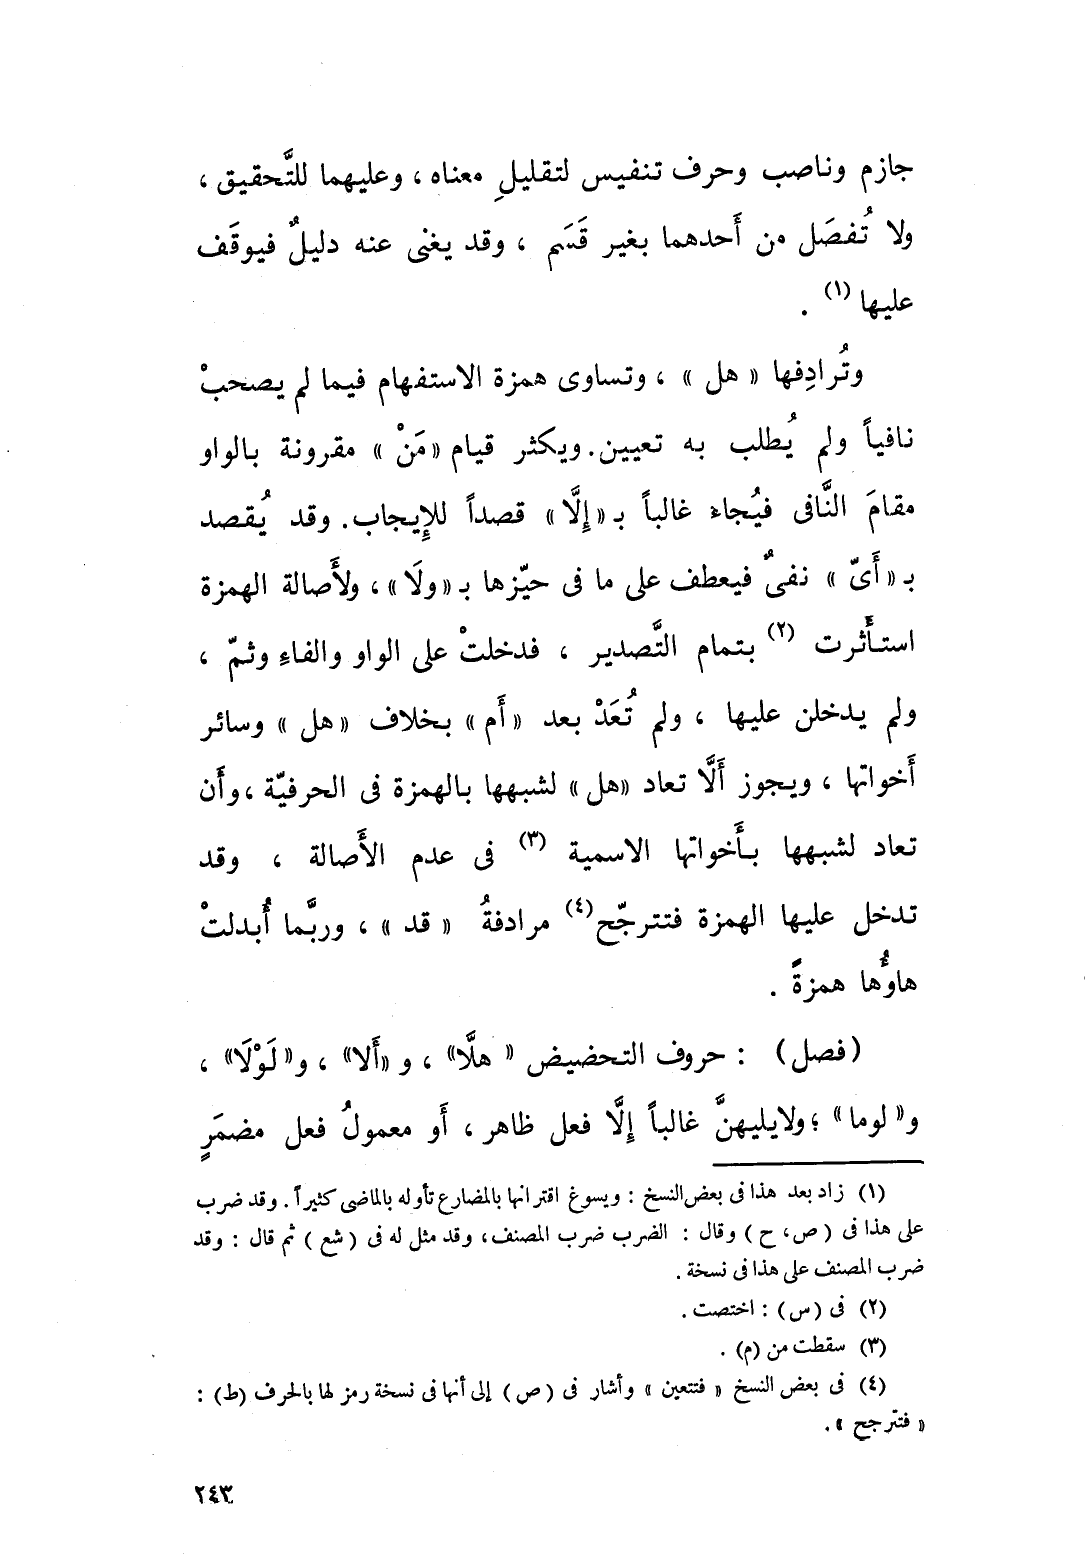 جازم وناصب وحرف تنفيس لتقليلِ معناه ، وعليهما للتَّحقيق ،
ولا تُفصَل من أَحدهما بغير قَسَم ، وقد يغنى عنه دليلٌ فيوقَف
عليها (١) .
وتُرادِفها « هل » ، وتساوى همزة الاستفهام فيما لم يصحبْ
نافياً ولم يُطلب به تعيين. ويكثر قيام « مَنْ » مقرونة بالواو
مقامَ النَّافى فيُجاء غالباً بـ « إِلَّا » قصداً للإِيجاب. وقد يُقصد
بـ « أَىّ » نفىٌ فيعطف على ما فى حيّزها بـ « ولَا » ، ولأَصالة الهمزة
استأْثرت (٢) بتمام التَّصدير ، فدخلتْ على الواو والفاءِ وثمّ ،
ولم يدخلن عليها ، ولم تُعَدْ بعد « أَم » بخلاف « هل » وسائر
أَخواتها ، ويجوز أَلَّا تعاد « هل » لشبهها بالهمزة فى الحرفيّة ، وأَن
تعاد لشبهها بأَخواتها الاسمية (٣) فى عدم الأَصالة ، وقد
تدخل عليها الهمزة فتترجّح (٤) مرادفةُ « قد » ، وربَّما أُبدلتْ
هاؤُها همزةً .
( فصل ) : حروف التحضيض « هلَّا » ، و « أَلا » ، و « لَوْلَا » ،
و « لوما » ؛ ولايليهنَّ غالباً إِلَّا فعل ظاهر ، أَو معمولُ فعل مضمَرٍ
(١) زاد بعد هذا فى بعض النسخ : ويسوغ اقترانها بالمضارع تأوله بالماضى كثيراً . وقد ضرب
على هذا فى ( ص ، ح ) وقال : الضرب ضرب المصنف ، وقد مثل له فى ( شع ) ثم قال : وقد
ضرب المصنف على هذا فى نسخة .
(٢) فى ( س ) : اختصت .
(٣) سقطت من (م) .
(٤) فى بعض النسخ « فتتعين » وأشار فى ( ص ) إلى أنها فى نسخة رمز لها بالحرف (ط) :
« فتترجح » .
٢٤٣